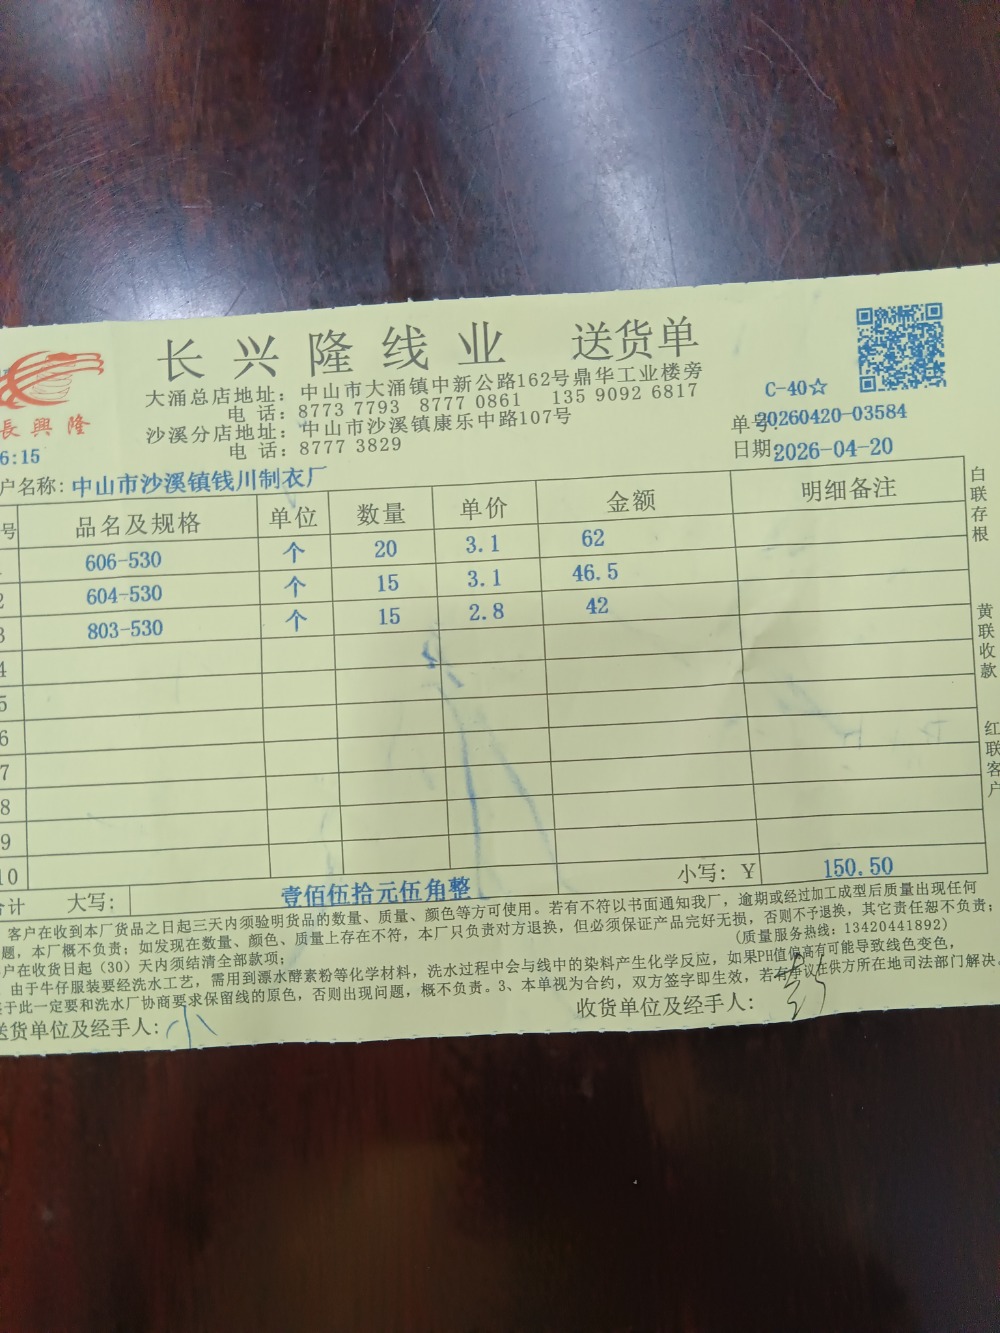 长兴隆线业 送货单
長興隆
大涌总店地址: 中山市大涌镇中新公路162号鼎华工业楼旁
电 话: 8773 7793 8777 0861 135 9092 6817
沙溪分店地址: 中山市沙溪镇康乐中路107号
电 话: 8777 3829
C-40☆
单号:20260420-03584
日期:2026-04-20
6:15
户名称: 中山市沙溪镇钱川制衣厂
号 品名及规格 单位 数量 单价 金额 明细备注
606-530 个 20 3.1 62
2 604-530 个 15 3.1 46.5
3 803-530 个 15 2.8 42
4
5
6
7
8
9
10
合计 大写: 壹佰伍拾元伍角整 小写: ¥ 150.50
白联存根
黄联收款
红联客户
客户在收到本厂货品之日起三天内须验明货品的数量、质量、颜色等方可使用。若有不符以书面通知我厂，逾期或经过加工成型后质量出现任何
题，本厂概不负责；如发现在数量、颜色、质量上存在不符，本厂只负责对方退换，但必须保证产品完好无损，否则不予退换，其它责任恕不负责；
户在收货日起（30）天内须结清全部款项； (质量服务热线: 13420441892)
由于牛仔服装要经洗水工艺，需用到漂水酵素粉等化学材料，洗水过程中会与线中的染料产生化学反应，如果PH值偏高有可能导致线色变色，
于此一定要和洗水厂协商要求保留线的原色，否则出现问题，概不负责。3、本单视为合约，双方签字即生效，若有争议在供方所在地司法部门解决。
送货单位及经手人: 小 收货单位及经手人: